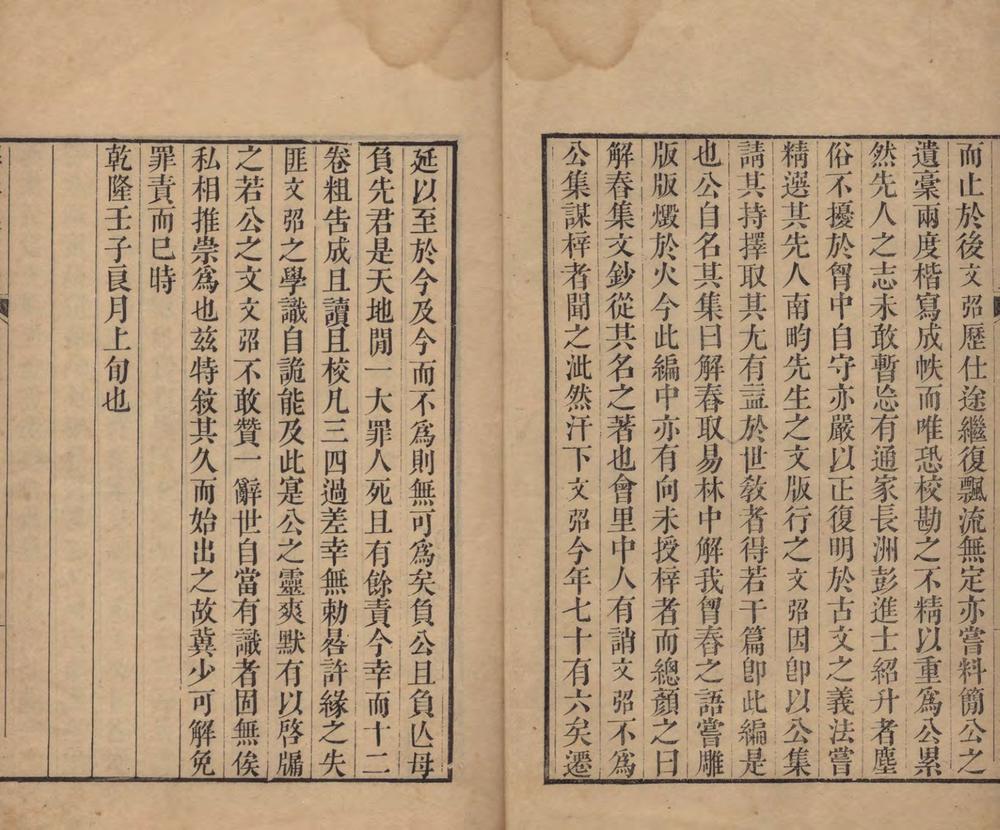 而止於後文弨歷仕途繼復飄流無定亦嘗料簡公之
遺稾兩度楷寫成帙而唯恐校勘之不精以重爲公累
然先人之志未敢暫忘有通家長洲彭進士紹升者塵
俗不擾於胷中自守亦嚴以正復明於古文之義法嘗
精選其先人南畇先生之文版行之文弨因卽以公集
請其持擇取其尤有益於世敎者得若干篇卽此編是
也公自名其集曰解舂取易林中解我胷舂之語嘗雕
版版燬於火今此編中亦有向未授梓者而總顏之曰
解舂集文鈔從其名之著也會里中人有誚文弨不爲
公集謀梓者聞之泚然汗下文弨今年七十有六矣遷
延以至於今及今而不爲則無可爲矣負公且負亾母
負先君是天地閒一大罪人死且有餘責今幸而十二
卷粗吿成且讀且校凡三四過差幸無勅㫷許緣之失
匪文弨之學識自詭能及此寔公之靈爽默有以啓牖
之若公之文文弨不敢贊一辭世自當有識者固無俟
私相推崇爲也兹特敘其久而始出之故冀少可解免
罪責而已時
乾隆壬子良月上旬也